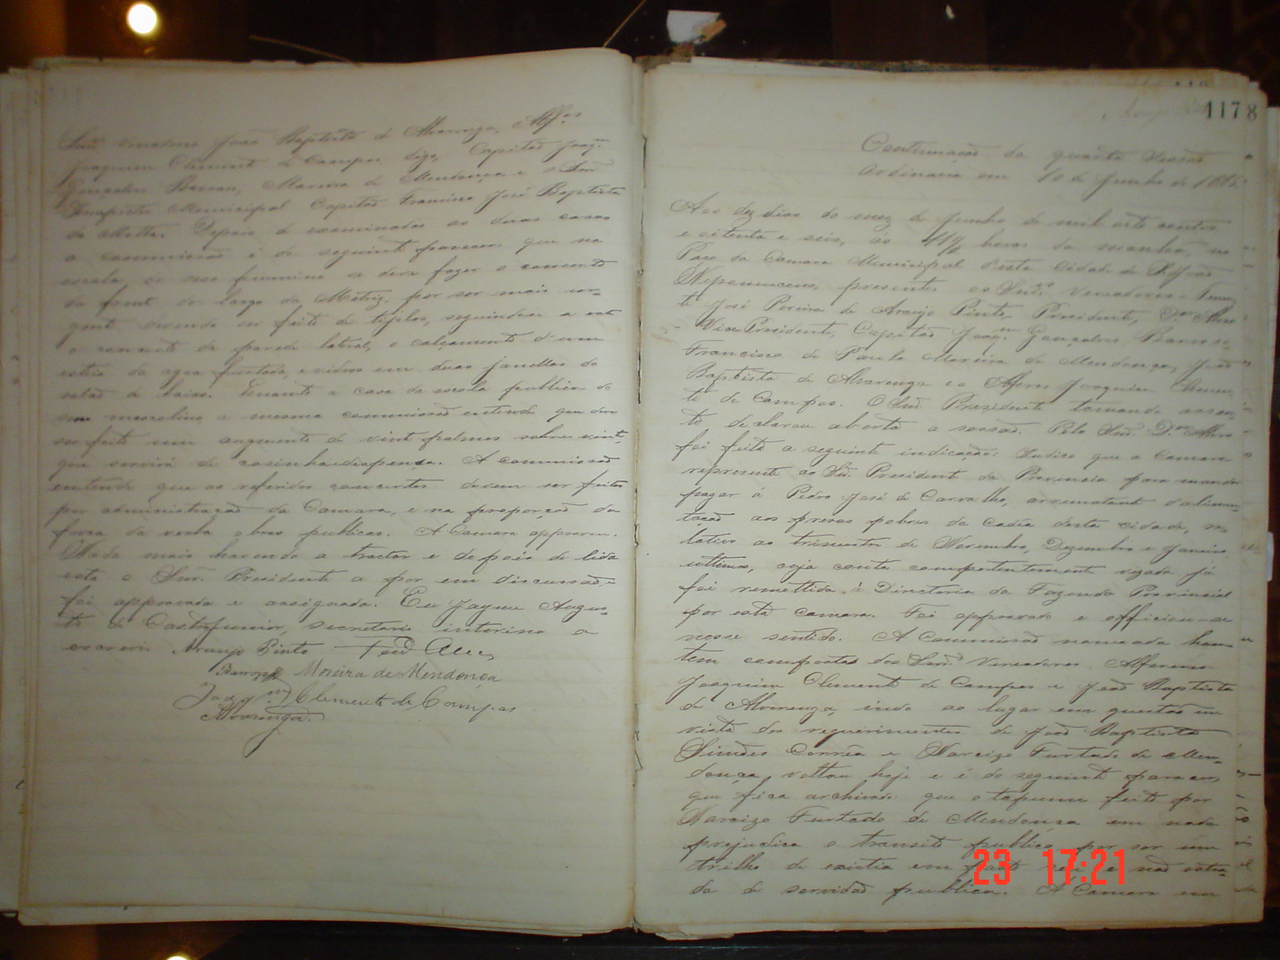 Vereadores João Baptista de Alvarenga, Alf.es
Joaquim Clemente de Campos, digo, Capitão Joaq.m
Gonçalves Barroso, Moreira de Mendonça e o Snr.
Municipal Capitão Francisco José Baptista
da Motta. Depois de examinadas as duas casas
a commissão é de seguinte parecer: que na
escola do sexo feminino se deva fazer o concerto
da frente do largo da Matriz, por ser mais ur-
gente, devendo ser feito de tijolos, seguindo-se a este
o concerto da parede lateral, o calçamento d'um
da agua furtada, e vidros em duas janellas do
salão de baixo. Emquanto a casa da escola publica do
sexo masculino a mesma commissão entende que deve
ser feito um augmento de vinte palmos sobre vinte
que servirá de cosinha e dispensa. A commissão
entende que os referidos concertos devem ser feitos
por administração da Camara, e na proporção da
força da verba obras publicas. A Camara approvou.
Nada mais havendo a tractar e depois de lida
esta o Snr. Presidente a pôr em discussão
foi approvada e assignada. Eu Jayme Augus
to de Castro Junior, secretario interino a
escrevi. Araujo Pinto
Barroso Moreira de Mendonça
Joaq.m Clemente de Campos
Alvarenga
1178
Continuação da quarta sessão
ordinaria em 10 de Junho de 1876
Aos dez dias do mez de Junho de mil oito centos
e setenta e seis, ás 11 1/2 horas da manhã, no
Paço da Camara Municipal desta Cidade de
presente os Snrs. Vereadores Tenen
te José Pereira de Araujo Pinto, Presidente, Dr.
Vice-Presidente, Capitão Joaq.m Gonçalves Barroso
Francisco de Paula Moreira de Mendonça, João
Baptista de Alvarenga e o Alferes Joaquim Clemen
te de Campos. O Snr. Presidente tomando assen
to declarou aberta a sessão. Pelo Snr. Dr.
foi feita a seguinte indicação: Indico que a Camara
represente ao Snr. Presidente da Provincia para mandar
pagar á Pedro José de Carvalho, arrematante d'alimen
tação aos presos pobres da cadeia desta cidade, re
lativo ao trimestre de Novembro, Dezembro e Janeiro
ultimos, cuja conta competentemente vizada já
foi remettida á Directoria da Fazenda Provincial
por esta camara. Foi approvado e officiou-se
nesse sentido. A Commissão nomeada hon
tem composta dos Snrs. Vereadores Alferes
Joaquim Clemente de Campos e João Baptista
de Alvarenga, indo ao lugar em questão em
vista dos requerimentos de João Baptista
Simões Corrêa e Narcizo Furtado de Men
donça, voltou hoje e é do seguinte parecer,
que fica archivado: que o tapume feito por
Narcizo Furtado de Mendonça em nada
prejudica o transito publico por ser um
trilho que existia em e não estra
da de servidão publica. A Camara em
23 17:21